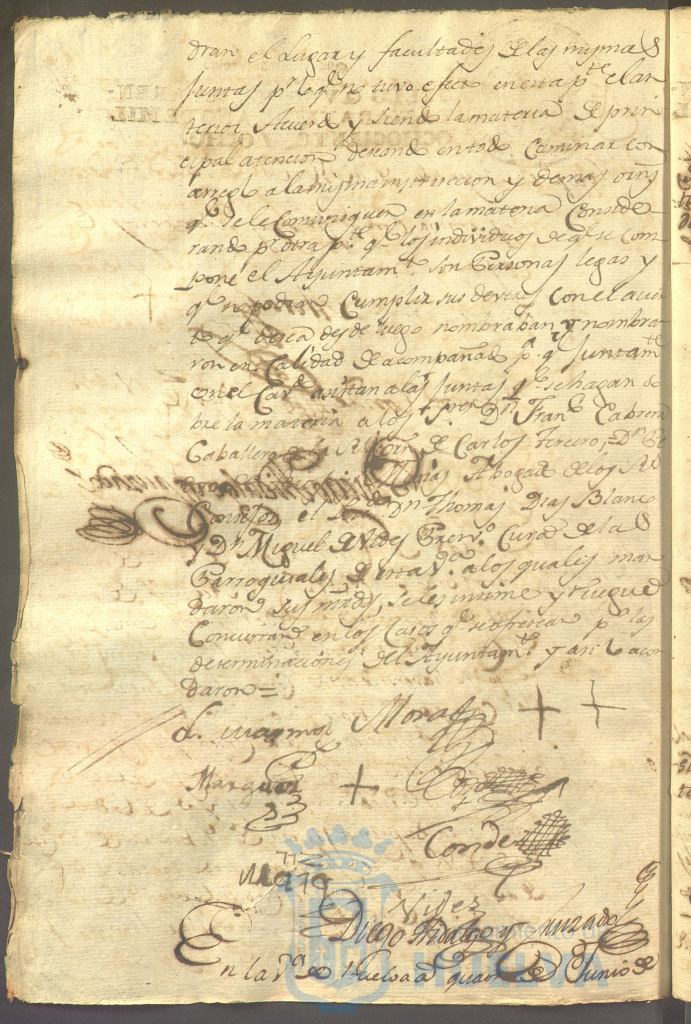 dran el Lugar y facultades de las mismas
Juntas pr. lo qe. no tuvo efecto en esta pte. el an
terior Acuerdo y siendo la materia de prin
cipal atencion deseando en todo Caminar con
arreglo a la misma instruccion y demas orns
qe. se le Comuniquen en la materia Conside
rando pr. otra pte. qe. los individuos de qe. se com
pone el Ayuntamto. son Personas legas y
qe. no podran Cumplir sus deveres con el acier
to qe. desea desde luego nombraban y nombra
ron en Calidad de acompañados pa. qe. juntamte.
con el Cavo. asistan a las Juntas qe. se hagan so
bre la materia a los Sres. Dn. Franco. Cabrera
Caballero de la de Carlos Tercero, Dn.
Abogado de los Rs
Consejos el Dn. Thomas Dias Blanco
y Dn. Miguel de Vides Presvo. Cura de las
Parroquiales de esta Va. a los quales man
daron sus mrds. se les intime y ruegue
Concurran en los Casos qe. se ofrezcan pa. las
determinaciones del Ayuntamto. y asi lo acor
daron =
Mora + +
Marquez +
Conde
Videz
Diego Hidalgo y
En la Va. de Huelva a quatro de Junio de
HUELVA